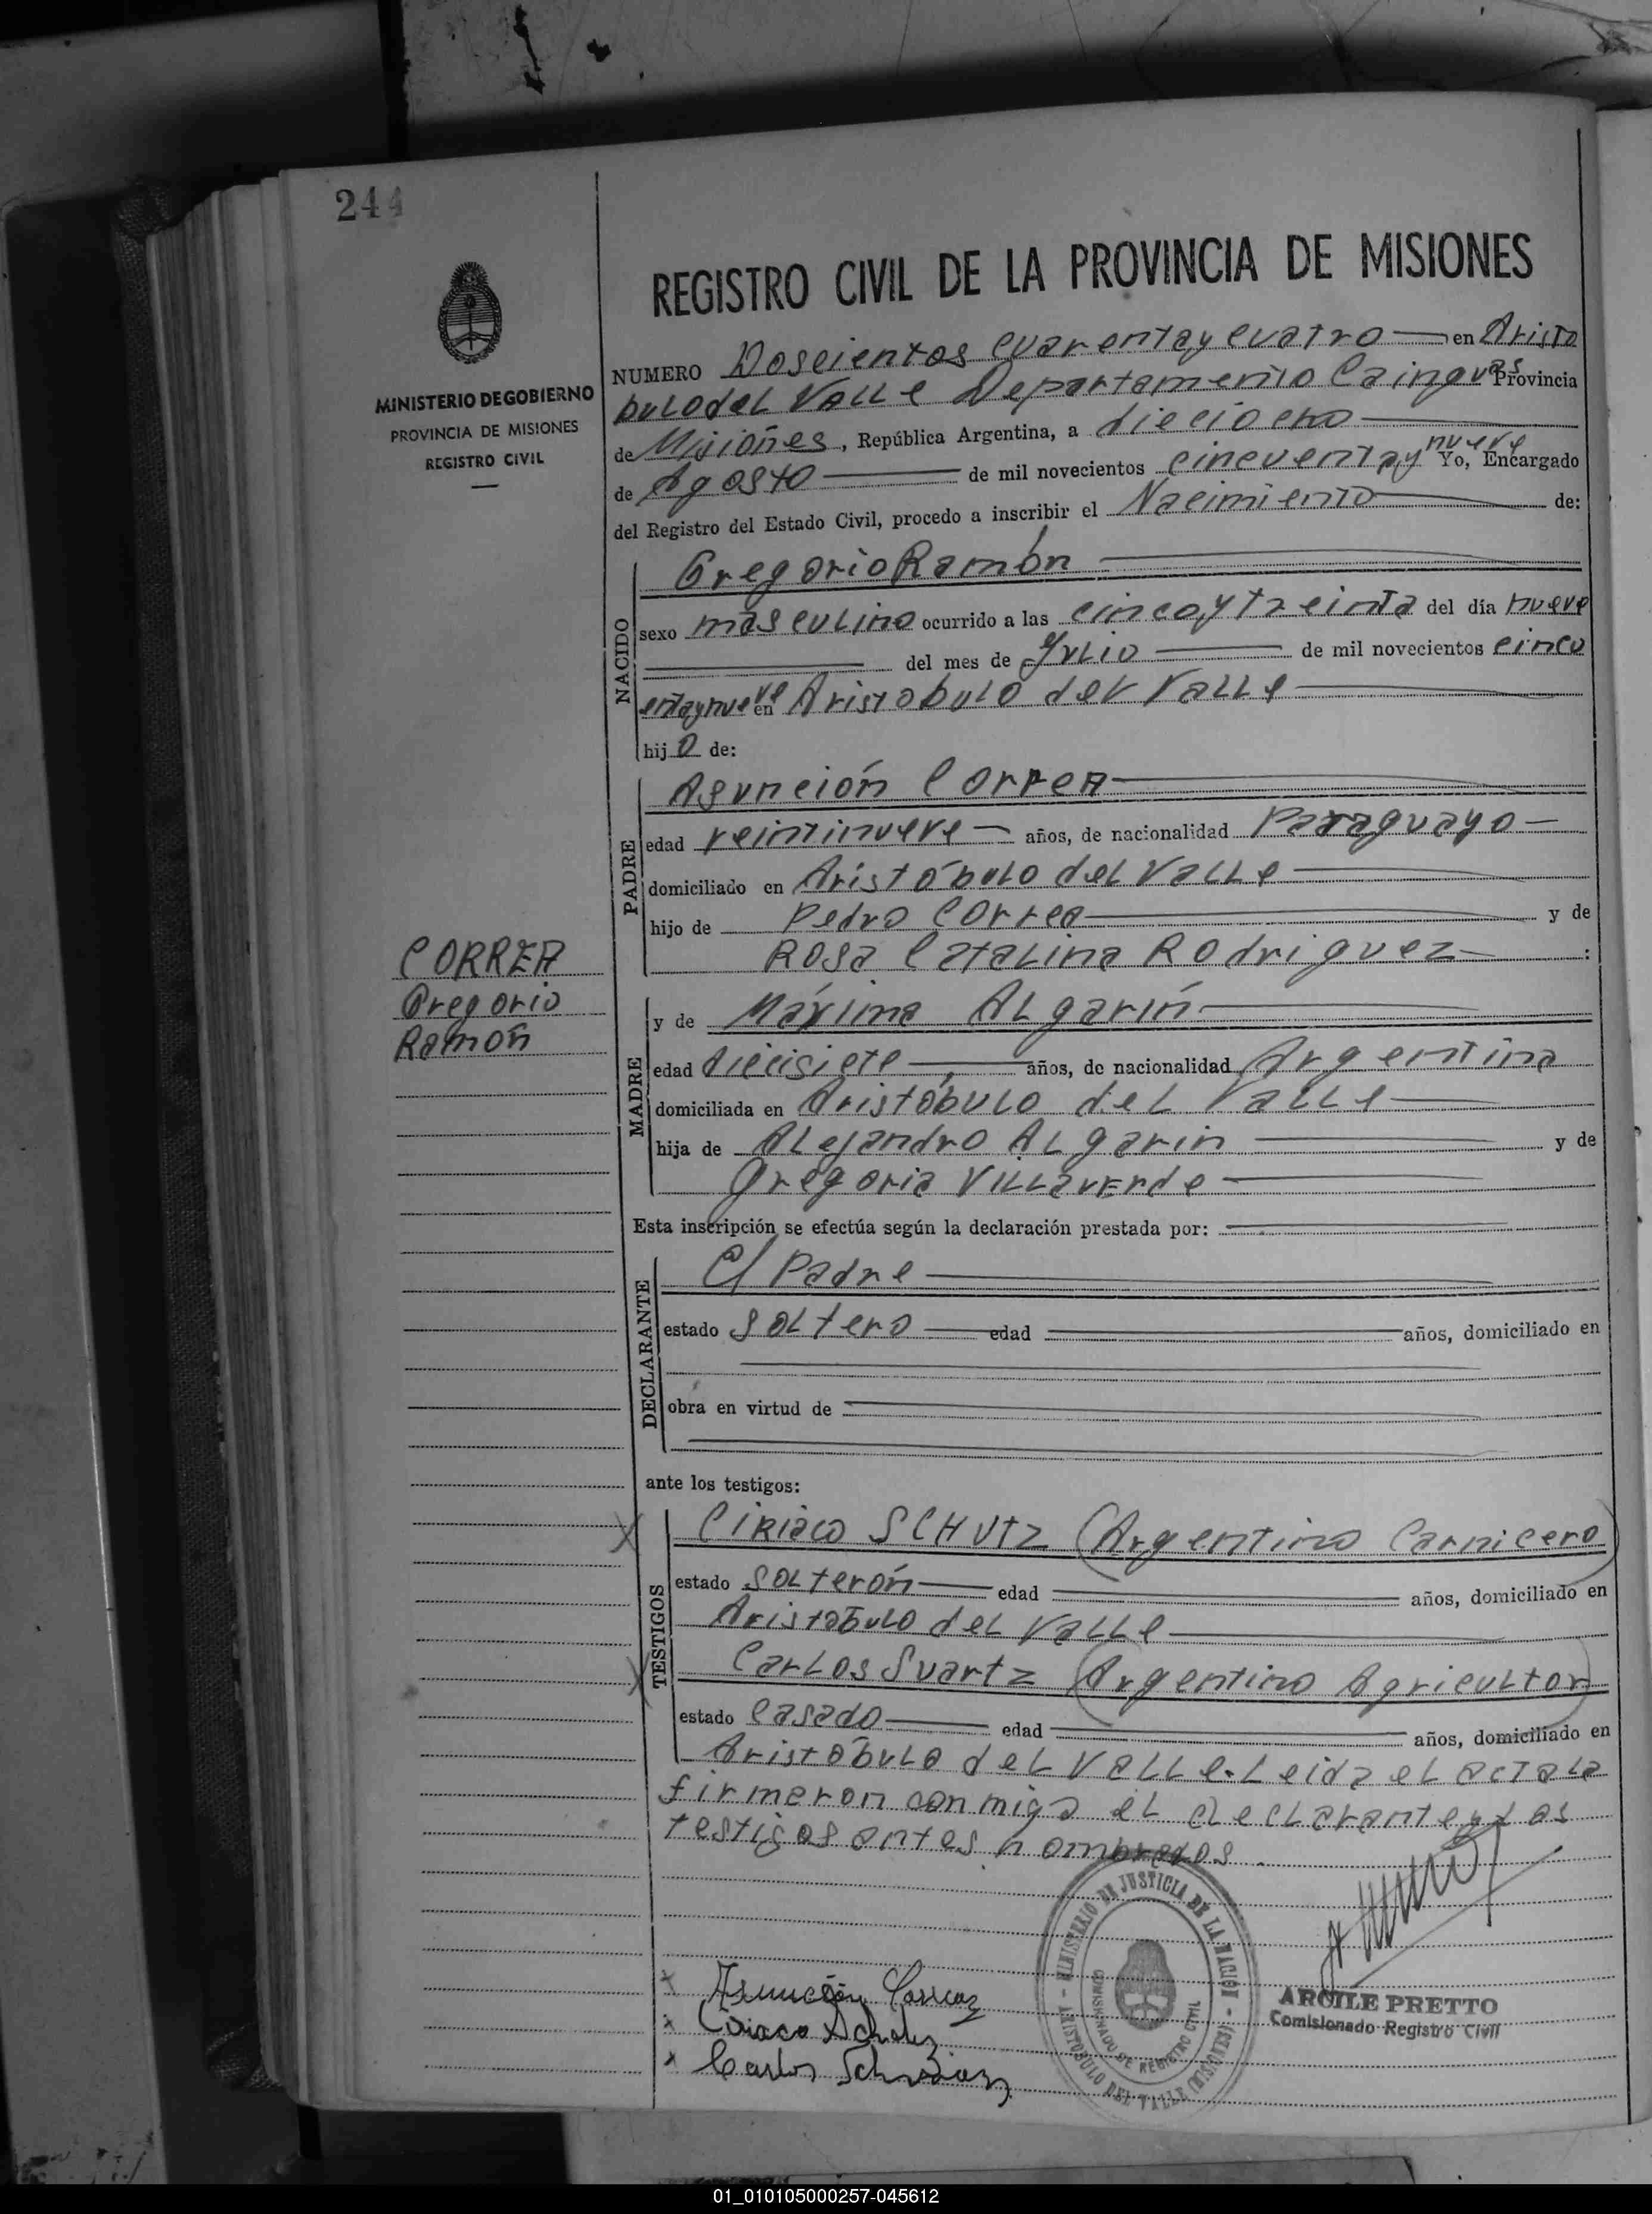 244
MINISTERIO DE GOBIERNO
PROVINCIA DE MISIONES
REGISTRO CIVIL
REGISTRO CIVIL DE LA PROVINCIA DE MISIONES
NUMERO Doscientos Cuarentay cuatro en Aristo
bulo del Valle Departamento Cainguas Provincia
de Misiones, República Argentina, a dieciocho
de Agosto de mil novecientos cincuentay nueve Yo, Encargado
del Registro del Estado Civil, procedo a inscribir el Nacimiento de:
NACIDO
Gregorio Ramón
sexo masculino ocurrido a las cinco y treinta del día nueve
del mes de Julio de mil novecientos cinco
entaynueve en Aristobulo del Valle
hijo de:
PADRE
Asunción Correa
edad veintinueve años, de nacionalidad Paraguayo
domiciliado en Aristóbulo del Valle
hijo de Pedro Correa y de
Rosa Catalina Rodriguez :
CORREA
Gregorio
Ramón
MADRE
y de Máxima Algarín
edad diecisiete años, de nacionalidad Argentina
domiciliada en Aristóbulo del Valle
hija de Alejandro Algarin y de
Gregoria Villaverde
Esta inscripción se efectúa según la declaración prestada por:
DECLARANTE
El Padre
estado Soltero edad años, domiciliado en
obra en virtud de
ante los testigos:
TESTIGOS
Ciriaco SCHUTZ (Argentino Carnicero)
estado Solterón edad años, domiciliado en
Aristobulo del Valle
Carlos Suartz (Argentino Agricultor)
estado Casado edad años, domiciliado en
Aristóbulo del Valle. Leida el acta la
firmeron conmigo el declarante y los
testigos antes nombrados.
Asunción
Ciriaco
Carlos
MINISTERIO DE JUSTICIA DE LA NACIÓN - ARISTOBULO DEL VALLE (MISIONES) -
COMISIONADO DE REGISTRO CIVIL
ARCILE PRETTO
Comisionado Registro Civil
01_010105000257-045612